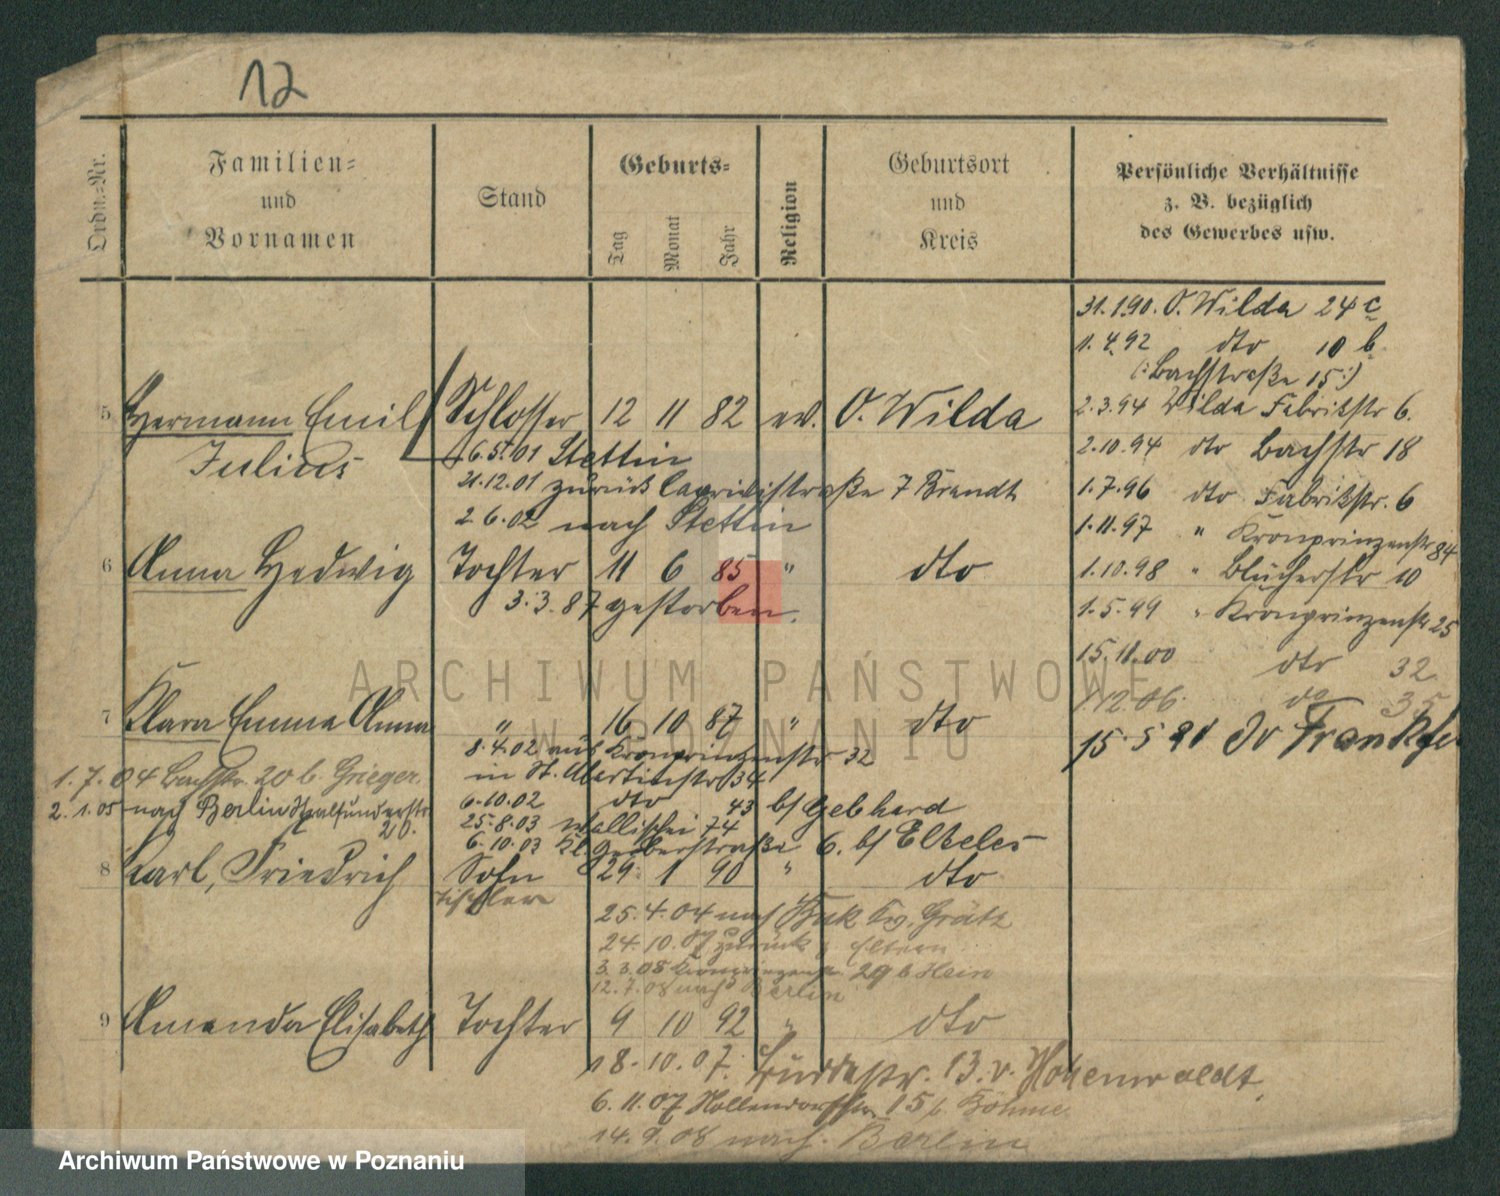 12
Ordn.-Nr.
Familien-
und
Vornamen
Stand
Geburts-
Tag
Monat
Jahr
Religion
Geburtsort
und
Kreis
Persönliche Verhältnisse
z. B. bezüglich
des Gewerbes usw.
31.1.90. O. Wilda 24 c
1.4.92 dto 10 b
(: Bachstraße 15 :)
2.3.94 Wilda Fabrikstr 6.
2.10.94 dto Bachstr 18
1.7.96 dto Fabrikstr. 6
1.11.97 " Kronprinzenstr 84
1.10.98 " Blücherstr 10
1.5.99 " Kronprinzenstr 25
15.11.00 dto 32
1.12.06. do 35
15.5.21
5 Hermann Emil Schlosser 12 11 82 ev. O. Wilda
Julius
6.5.01 Stettin
21.12.01 zurück 7 Brandt
2.6.02 nach Stettin
6 Anna Hedwig Tochter 11 6 85 " dto
3.3.87 gestorben.
7 Klara Emma Anna " 16 10 87 " dto
8.4.02 aus Kronprinzenstr 32
in St. Martinstr 34
1.7.04 Bachstr. 20 b. Grieger.
6.10.02 dto 43 b/ Gebhard
2.1.05 nach Berlin
20.
25.8.03 Wallischei 74
6.10.03 Kl. Gerberstraße 6. b/ Elkeles
8 Karl, Friedrich Sohn 29 1 90 " dto
Tischler
25.4.04 nach Buk Kr. Grätz
24.10.07 zurück z. Eltern
3.3.08 Kronprinzenstr. 29 b Hein
12.7.08 nach Berlin
9 Amanda Elisabeth Tochter 9 10 92 " dto
18.10.07. 13. v. Hohenwaldt.
6.11.07 Hollendorffstr. 15 b. Böhme
14.9.08 nach. Berlin
ARCHIWUM PAŃSTWOWE
W POZNANIU
Archiwum Państwowe w Poznaniu